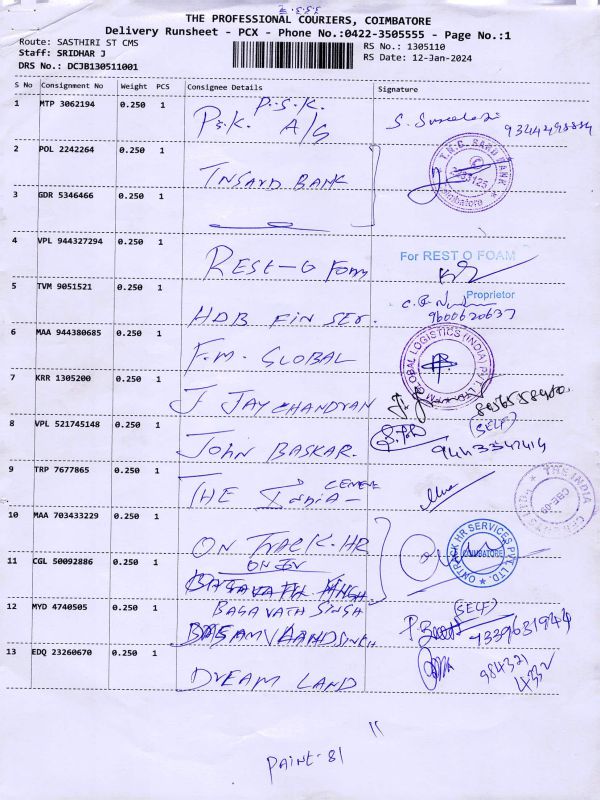 THE PROFESSIONAL COURIERS, COIMBATORE
Delivery Runsheet - PCX - Phone No.:0422-3505555 - Page No.:1
Route: SASTHIRI ST CMS
RS No.: 1305110
Staff: SRIDHAR J
RS Date: 12-Jan-2024
DRS No.: DCJB130511001
S No Consignment No Weight PCS Consignee Details Signature
1 MTP 3062194 0.250 1 P.S.K.
P.S.K. A/G
2 POL 2242264 0.250 1 TNSARD BANK
3 GDR 5346466 0.250 1
4 VPL 944327294 0.250 1 REST-O FOAM For REST O FOAM
Proprietor
5 TVM 9051521 0.250 1 HDB FIN SER. 9600620637
6 MAA 944380685 0.250 1 F.M. GLOBAL GLOBAL LOGISTICS (INDIA) PVT
7 KRR 1305200 0.250 1 J JAYCHANDRAN
8 VPL 521745148 0.250 1 JOHN BASKAR. (SELF)
9 TRP 7677865 0.250 1 THE INDIA CEMENT THE INDIA
10 MAA 703433229 0.250 1 ON TRACK. HR ONTRACK HR SERVICES PVT. LTD. COIMBATORE
11 CGL 50092886 0.250 1
12 MYD 4740505 0.250 1 BAGAVATH SINGH (SELF)
7339631944
13 EDQ 23260670 0.250 1 DREAM LAND
PAINT-81